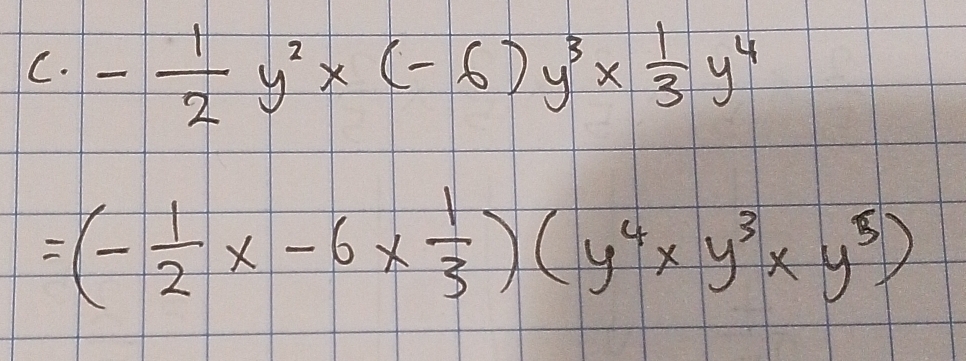 c. - 1/2 y² × (- 6) y³ × 1/3 y⁴
= (- 1/2 × - 6 × 1/3) (y⁴ × y³ × y⁵)